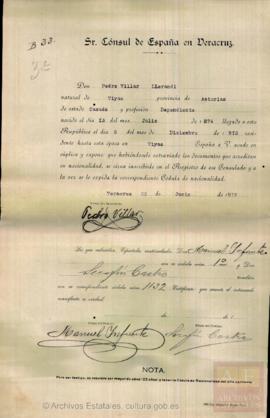 B 33.
32
Sr. Cónsul de España en Veracruz.
Don Pedro Villar Llarandi
natural de Viyao provincia de Asturias
de estado Casado y profesión Dependiente
nacido el día 13 del mes Julio de 1874 llegado a esta
República el día 5 del mes de Diciembre de 1912 resi-
dente hasta esta época en Viyao España a V. acude en
súplica y expone que habiéndosele extraviado los documentos que acreditan
su nacionalidad, se sirva inscribirle en el Registro de ese Consulado y a
la vez se le expida la correspondiente Cédula de nacionalidad.
Veracruz 22 de Junio de 1933
Pedro Villar
Los que subscriben, Españoles matriculados: Don Manuel Infiesta
con su cédula núm. 10 y Don
Serafin Castro también
con su correspondiente cédula núm. 1132 Certifican: que consta el interesado
manifiesta es verdad.
Manuel Infiesta Serafin Castro
NOTA.
© Archivos Estatales, cultura.gob.es